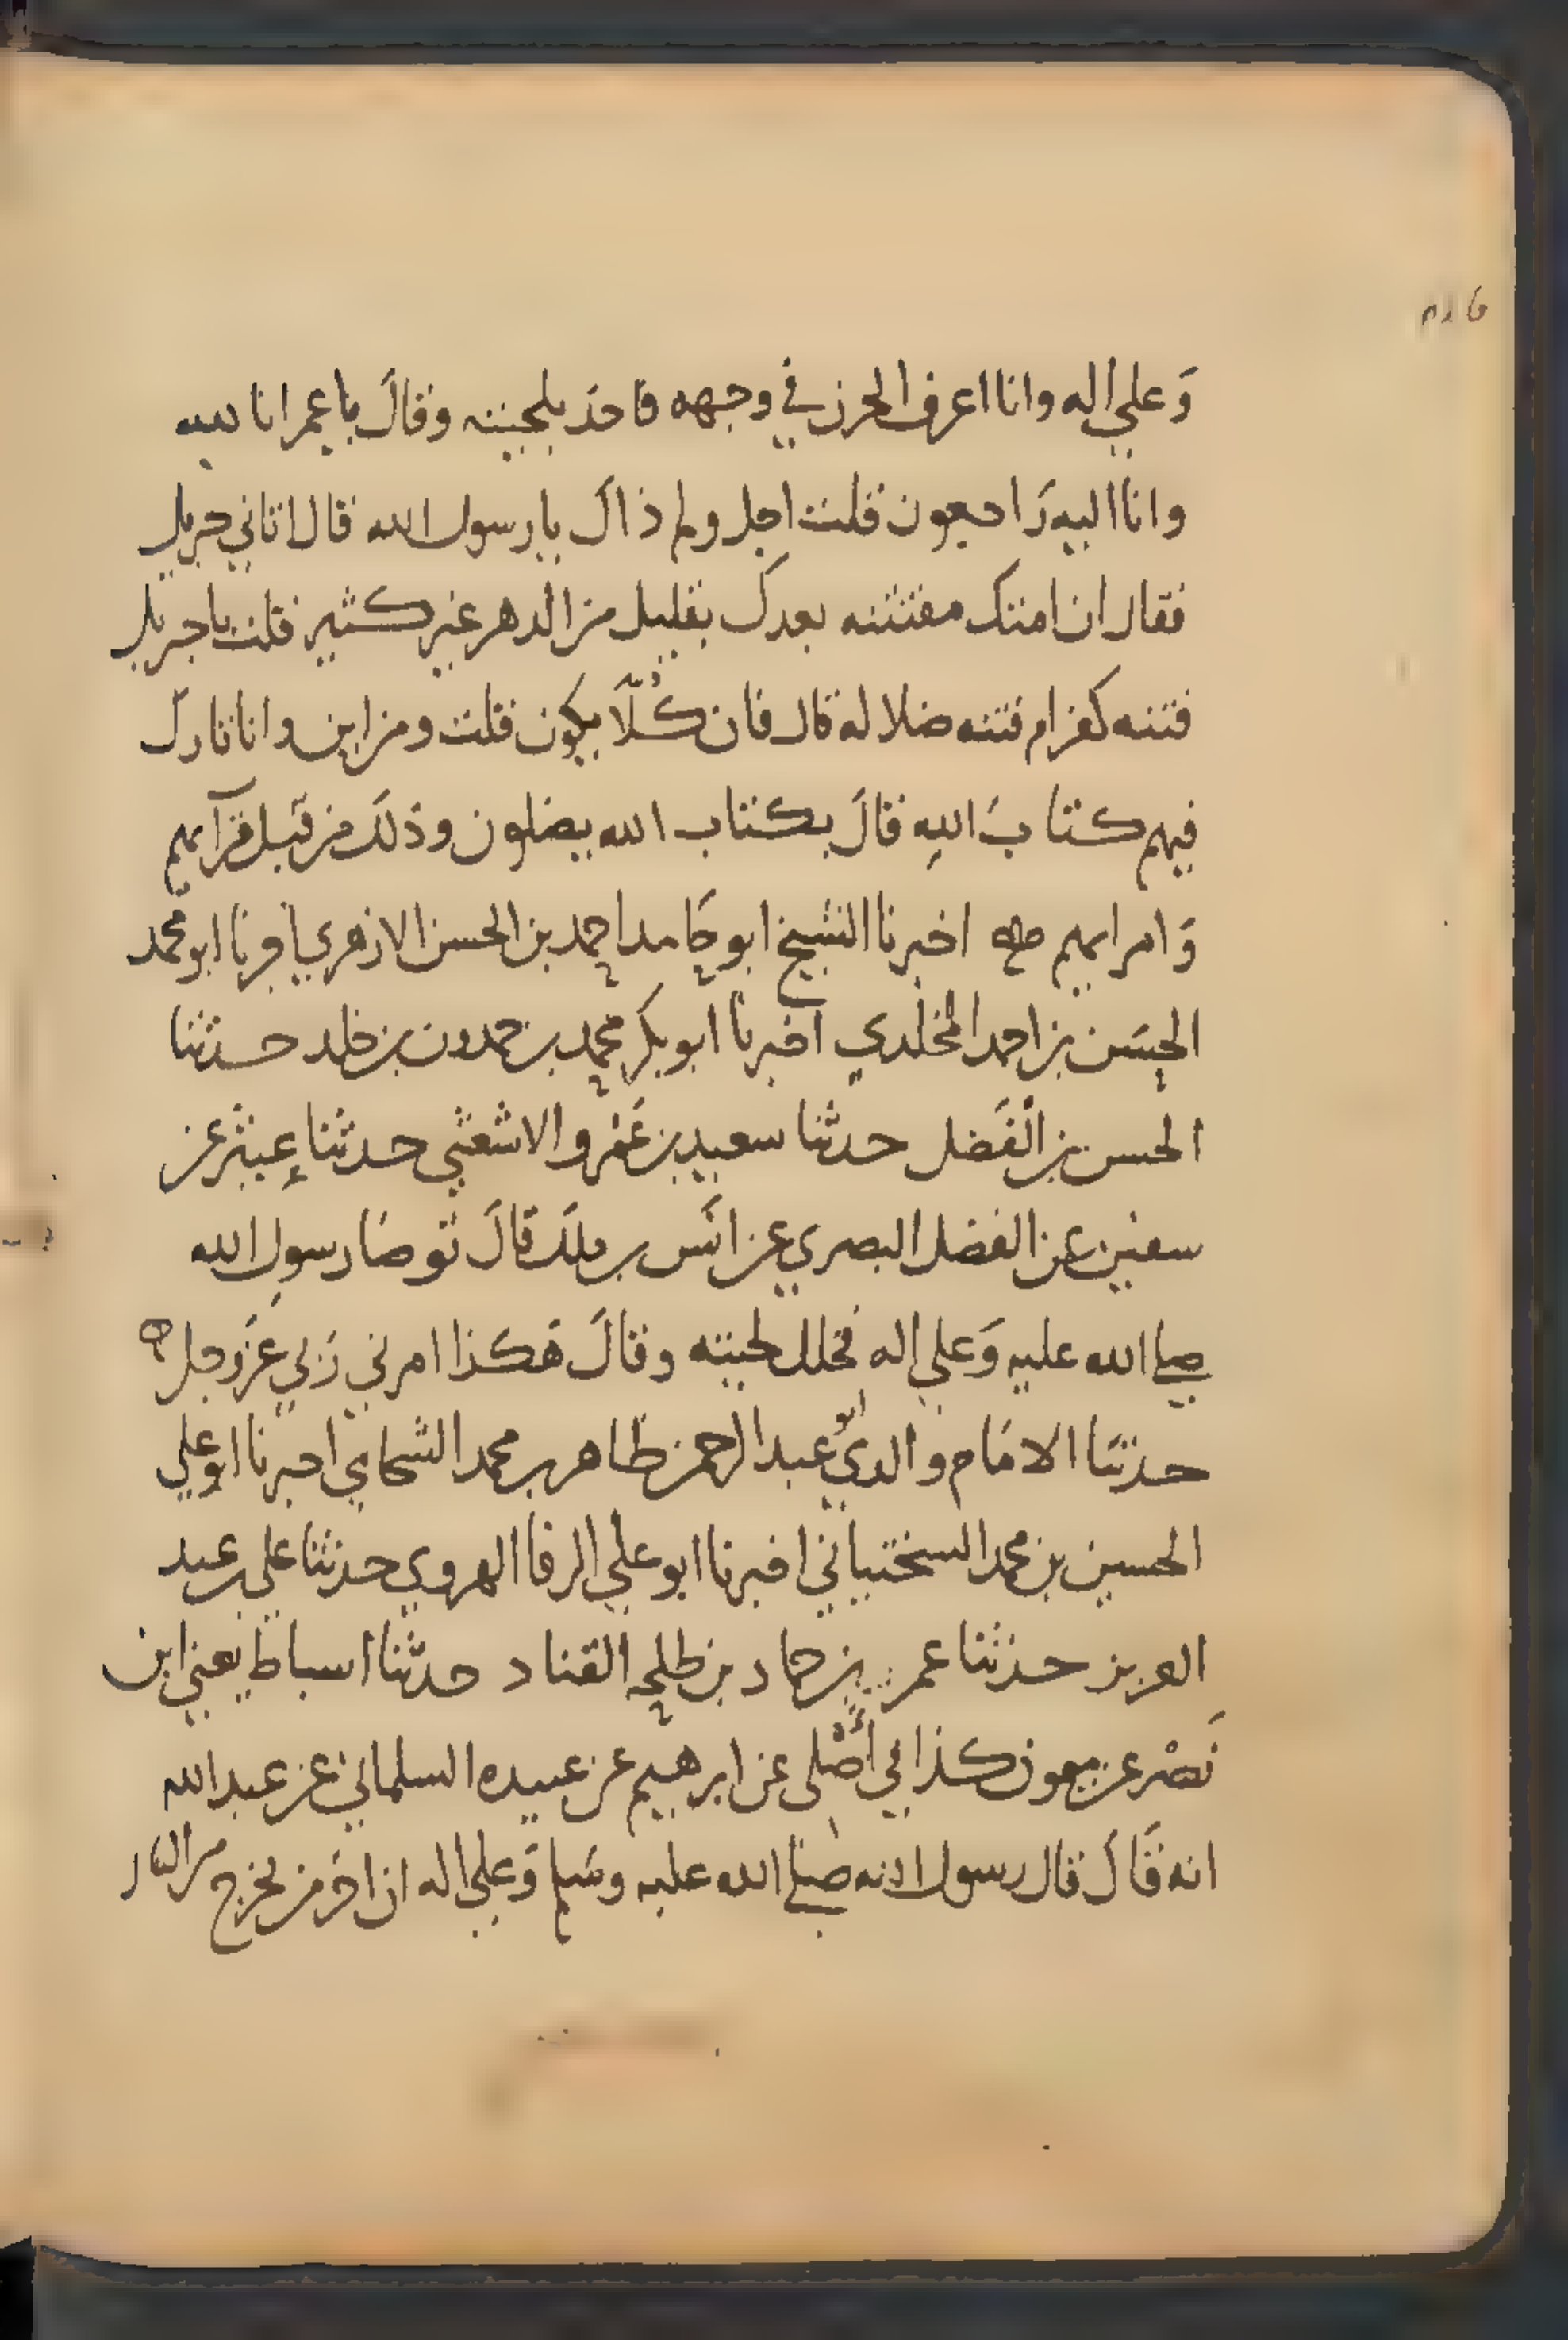 وَعلي اله وانا اعرف الحزن في وجهه فاخذ بلحيته وقالَ يا عمر انا لله
وانا اليه رَاجعون قلت اجل ولم ذاكَ يا رسول الله قال اتاني جبريل
فقال ان امتك مفتتنه بعدك بقليل من الدهر غير كثير قلت يا جبريل
فتنه كفر ام فتنه ضلاله قال فان كُلّاً يكون قلت ومن اين وانا تارك
فيهم كتابَ اللهِ قالَ بكتاب الله يضلون وذلكَ من قبل قرآيهم
وَامرايهم اخبرنا الشيخ ابو حَامد احمد بن الحسن الازهري اخبرنا ابو محمد
الحسَن بن احمد المخلدي اخبرنا ابو بكر محمد بن حمدون بن خلد حدثنا
الحسن بن الفَضل حدثنا سعيد بن عَمرو الاشعثي حدثنا عبثر عن
سفين عن الفضل البصري عن انَس بن ملك قالَ توضا رسول الله
صلى الله عليه وَعلي اله فخلل لحيته وقالَ هَكذا امرني رَبي عَزوجل ه
حدثنا الامَام والدي ابو عبد الرحمن طاهر بن محمد الشحامي اخبرنا ابو علي
الحسين بن محمد السختياني اخبرنا ابو علي الرفا الهروي حدثنا علي بن عبد
العزيز حدثنا عمرو بن حماد بن طلحه القناد حدثنا اسباط يعني ابن
نَصْر عن ميمون كذا في أصْلى عن ابرهيم عن عبيده السلماني عن عبد الله
انه قَالَ قال رسول الله صلى الله عليه وسَلم وَعلي اله ان اخر من يخرج من النار